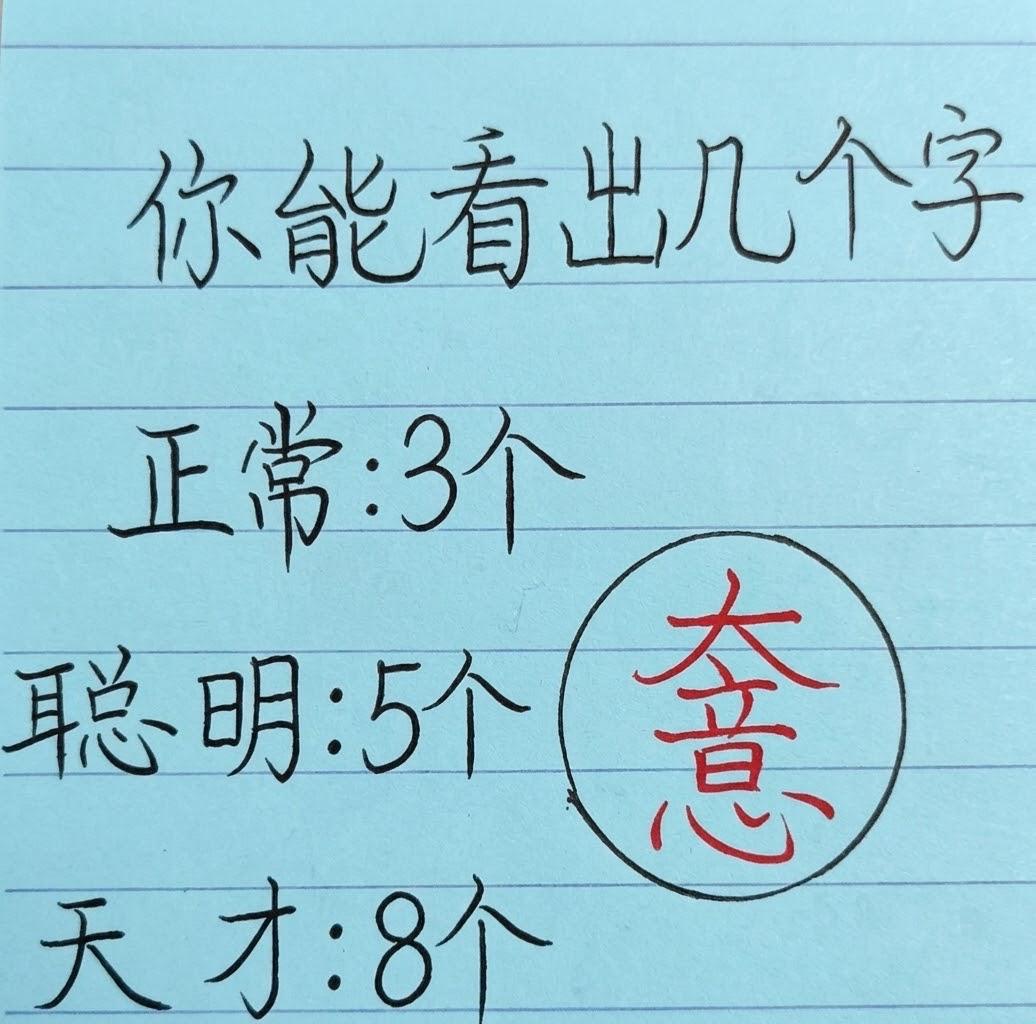 你能看出几个字
正常:3个
聪明:5个
大意
天才:8个